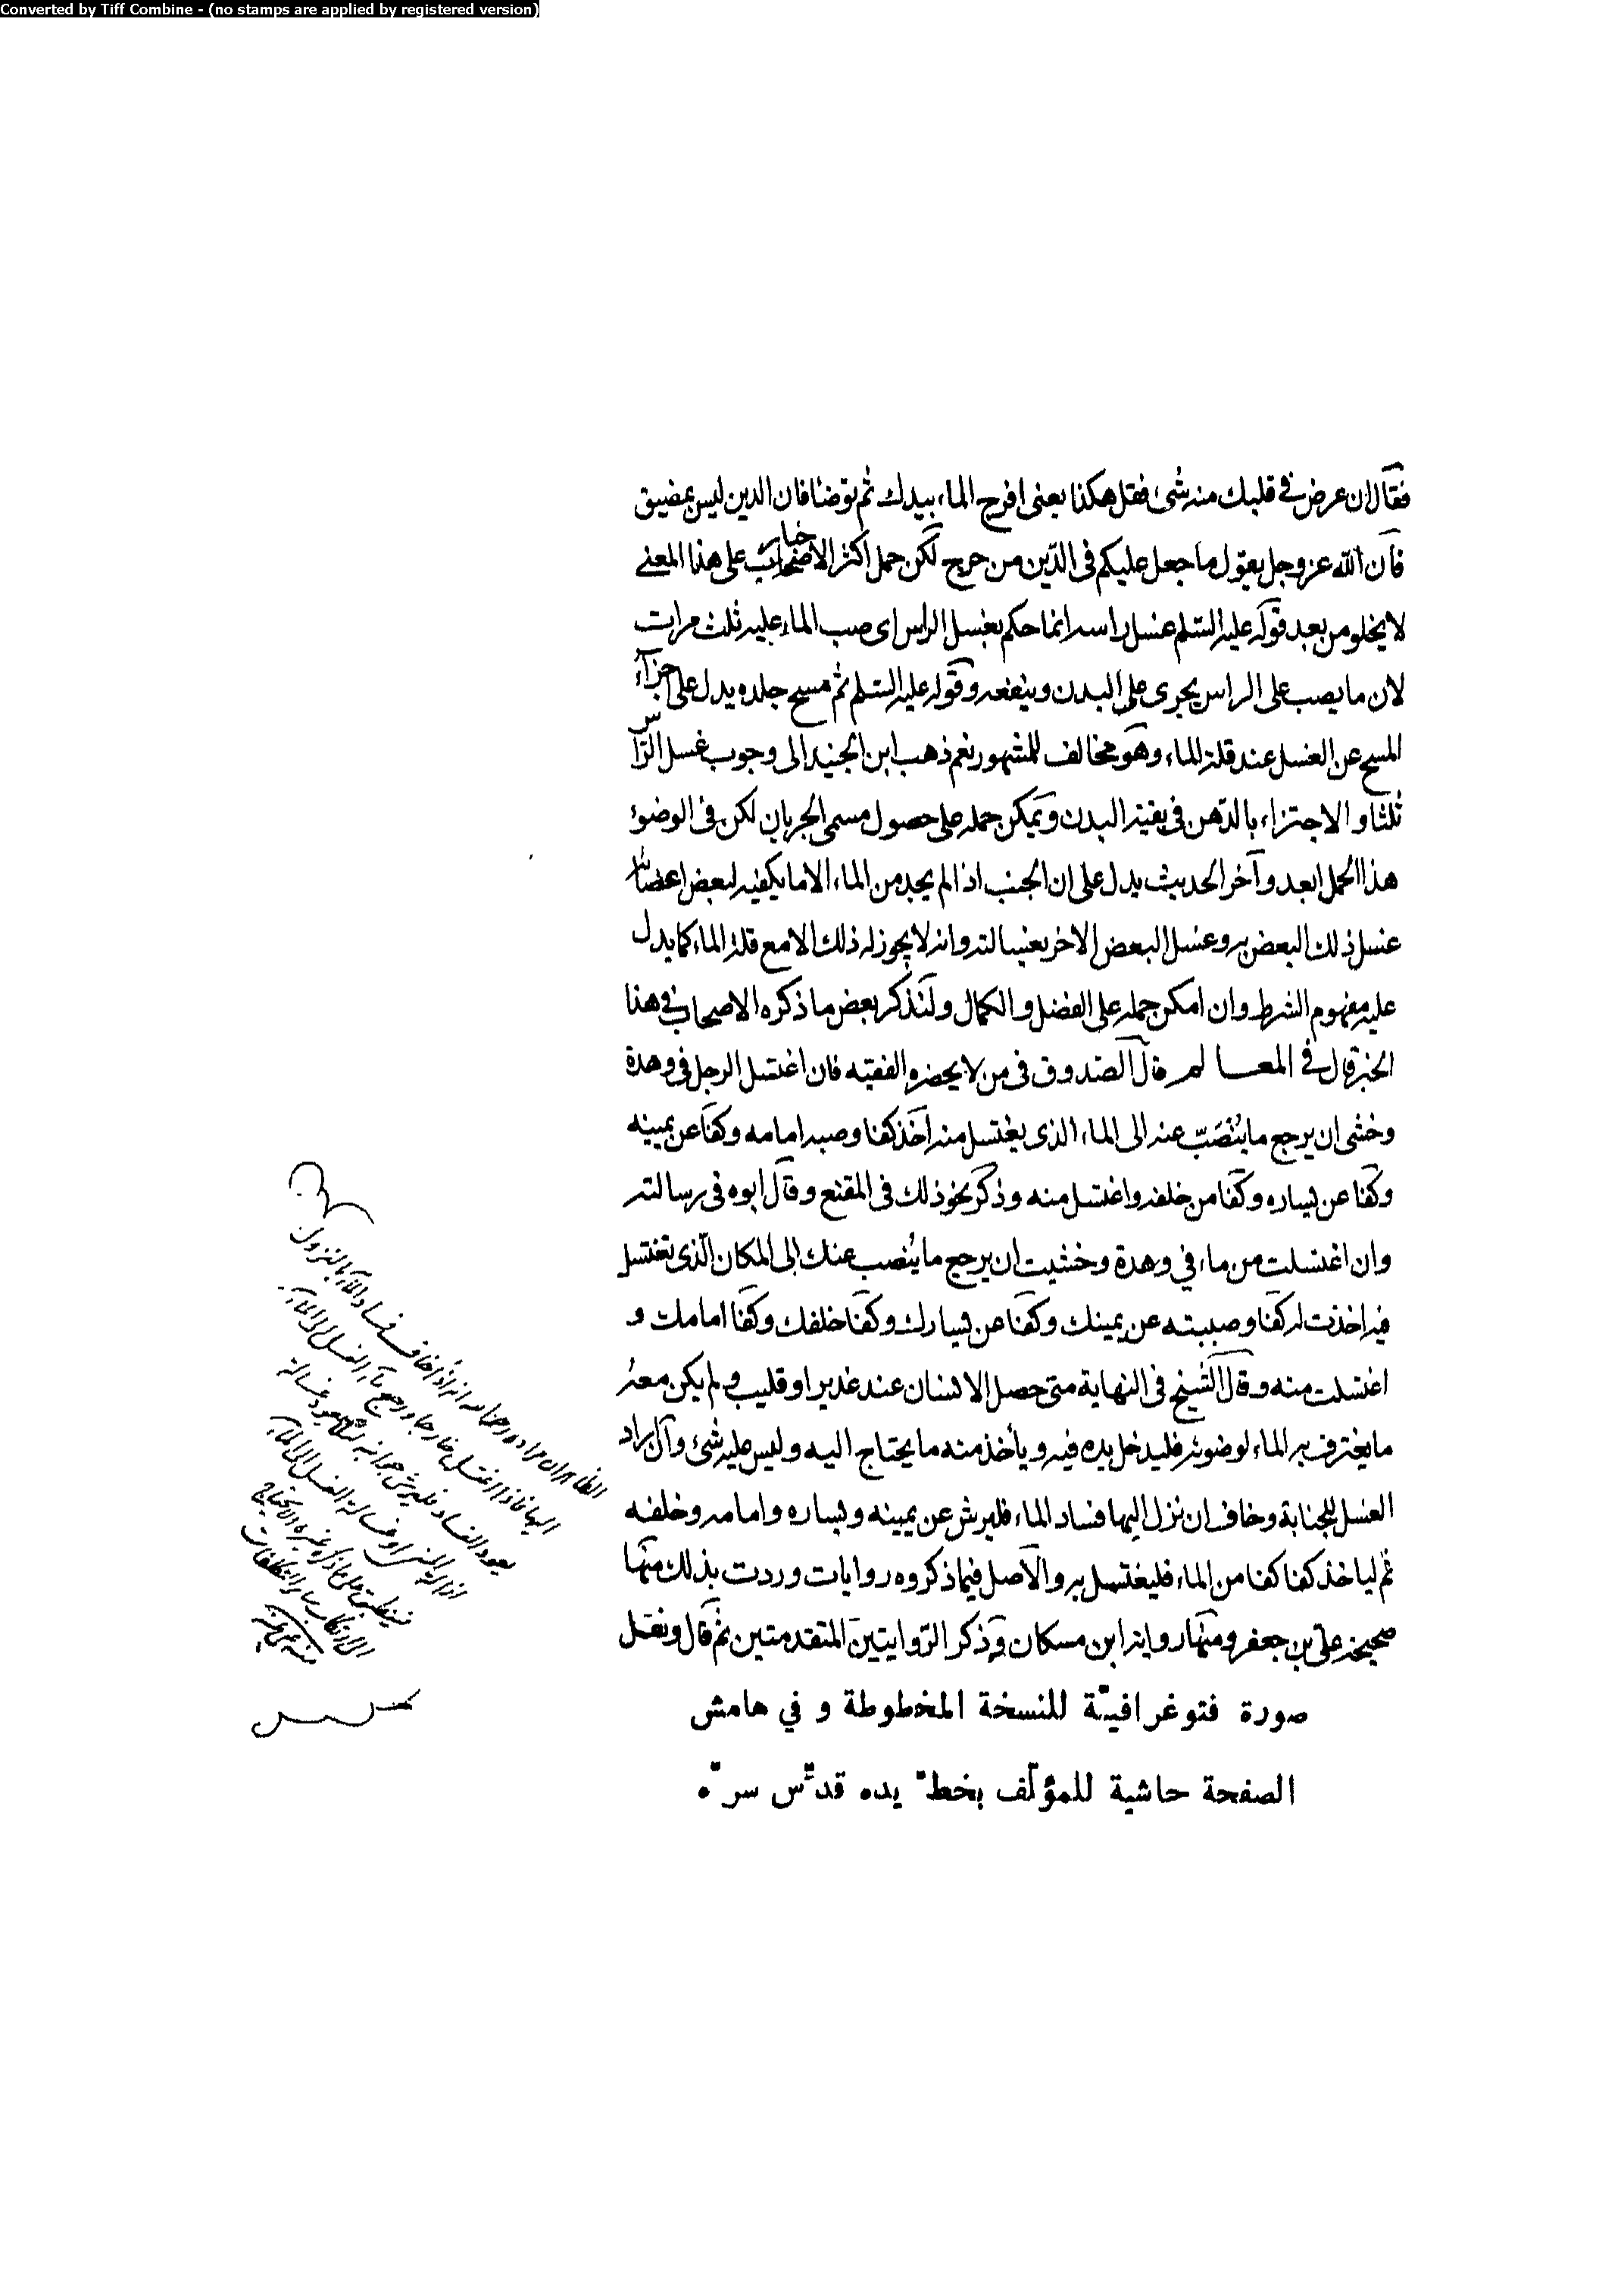 Converted by Tiff Combine - (no stamps are applied by registered version)
فقال ان عرض في قلبك منه شئ فقل هكذا يعنى افرج الماء بيدك ثم توضا فان الدين ليس بمضيق
فان الله عز وجل يقول ما جعل عليكم فى الدّين من حرج لكن حمل اكثر الاخبار على هذا المعنى
لا يخلو من بعد قوله عليه السّلم غسل راسه انما حكم بغسل الراس اى صب الماء عليه ثلث مرات
لان ما يصب على الراس يجرى على البدن وينفعه وقوله عليه السلم ثم مسح جلده يدل على اجزآء
المسح عن الغسل عند قلة الماء وهو مخالف للمشهور نعم ذهب ابن الجنيد الى وجوب غسل الرّاس
ثلثا و الاجتزاء بالدّهن فى بقية البدن ويمكن حمله على حصول مسمى الجريان لكن فى الوضوء
هذا الحمل ابعد وآخر الحديث يدل على ان الجنب اذا لم يجد من الماء الا ما يكفيه لبعض اعضائه
غسل ذلك البعض به وغسل البعض الاخر بغسالته وانه لا يجوز له ذلك الا مع قلة الماء كما يدل
عليه مفهوم الشرط وان امكن حمله على الفضل والكمال ولنذكر بعض ما ذكره الاصحاب فى هذا
الخبر قال في المعالم قال الصّدوق فى من لا يحضره الفقيه فان اغتسل الرجل فى وهدة
وخشى ان يرجع ما يَنْصَبّ عنه الى الماء الذى يغتسل منه اخذ كفا وصبه امامه وكفا عن يمينه
وكفا عن يساره وكفا من خلفه واغتسل منه وذكر نحو ذلك فى المقنع وقال ابوه فى رسالته
وان اغتسلت من ماء في وهدة وخشيت ان يرجع ما ينصب عنك الى المكان الّذى تغتسل
فيه اخذت له كفا وصببته عن يمينك وكفا عن يسارك وكفا خلفك وكفا امامك و
اغتسلت منه وقال الشيخ فى النهاية متى حصل الانسان عند غدير او قليب و لم يكن معه
ما يغترف به الماء لوضوئه فليدخل يده فيه ويأخذ منه ما يحتاج اليه وليس عليه شئ وان اراد
الغسل للجنابة وخاف ان نزل اليها فساد الماء فليرش عن يمينه ويساره وامامه وخلفه
ثم ليا خذ كفا كفا من الماء فليغتسل به والاصل فيما ذكروه روايات وردت بذلك منها
صحيحة على بن جعفر ومنها رواية ابن مسكان وذكر الرّوايتين المتقدمتين ثم قال ونقل
الظاهر ان مراده انه اذا خاف فساد الماء بالنزول
اليها فاذا اغتسل خارجا ورجع ماء الغسل الى الماء
يعود الفساد فليرش جوانبه
صورة فتوغرافيّة للنسخة المخطوطة و في هامش
الصفحة حاشية للمؤلّف بخطّ يده قدّس سرّه